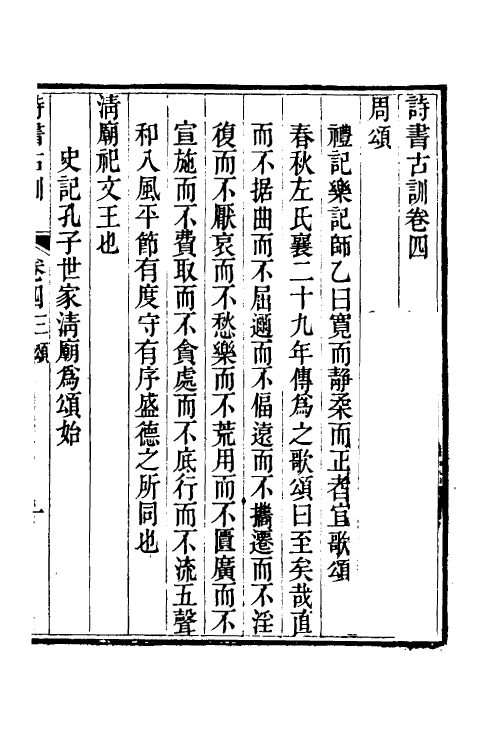 詩書古訓卷四
周頌
禮記樂記師乙曰寛而靜柔而正者宜歌頌
春秋左氏襄二十九年傳爲之歌頌曰至矣哉直
而不倨曲而不屈邇而不偪遠而不攜遷而不淫
復而不厭哀而不愁樂而不荒用而不匱廣而不
宣施而不費取而不貪處而不底行而不流五聲
和八風平節有度守有序盛德之所同也
淸廟祀文王也
史記孔子世家淸廟爲頌始
詩書古訓 卷四 三頌 一